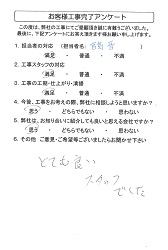 お客様工事完了アンケート
この度は、弊社の工事にてご愛顧頂き誠に有難うございました。
最後に、下記アンケートにお答え頂きます様お願い申し上げます。
1. 担当者の対応 (担当者名:
満足 ・ 普通 ・ 不満
2. 工事スタッフの対応
満足 ・ 普通 ・ 不満
3. 工事の工期・仕上がり・清掃
満足 ・ 普通 ・ 不満
4. 今後、工事をお考えの際、弊社に相談しようと思いますか?
思う ・ どちらでもない ・ 思わない
5. 弊社は、お知り合いに紹介しても良いと思える会社ですか?
思う ・ どちらでもない ・ 思わない
6. その他、ご意見・ご希望等ございましたらお聞かせ下さい
とても良い
スタッフ
でした